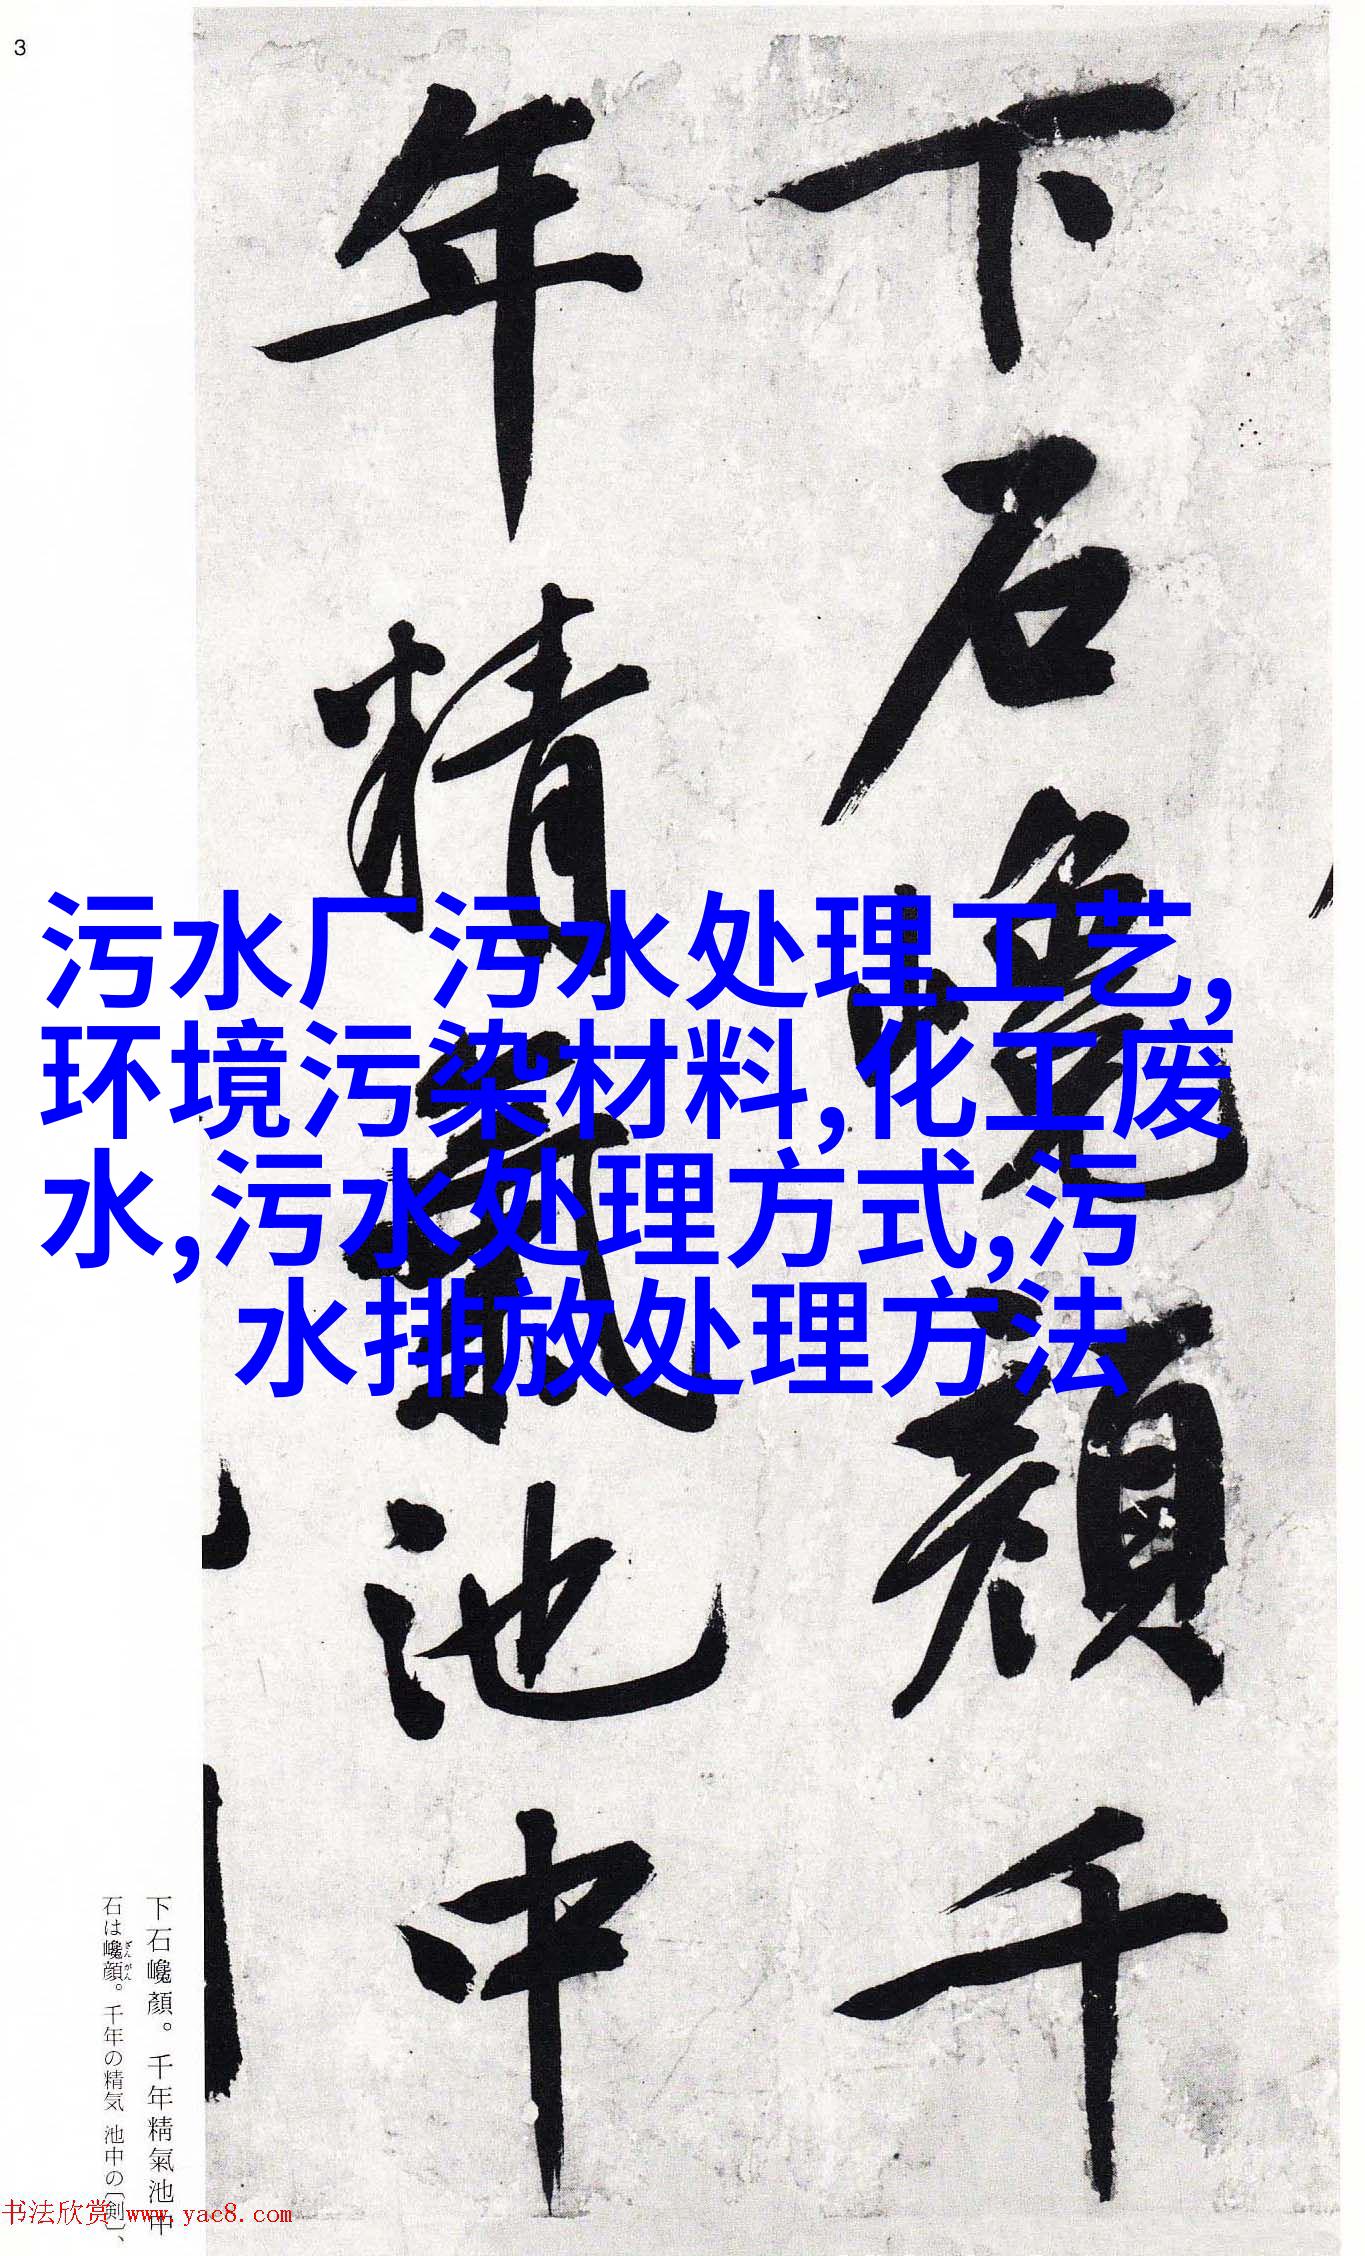 3
下石巉顏千
年精氣池中
污水厂污水处理工艺,
环境污染材料,化工废
水,污水处理方式,污
水排放处理方法
下石巉顏。千年精氣池中
石は巉顔。千年の精気 池中の〔剣〕、
ざんがん
书法欣赏 www.yac8.com